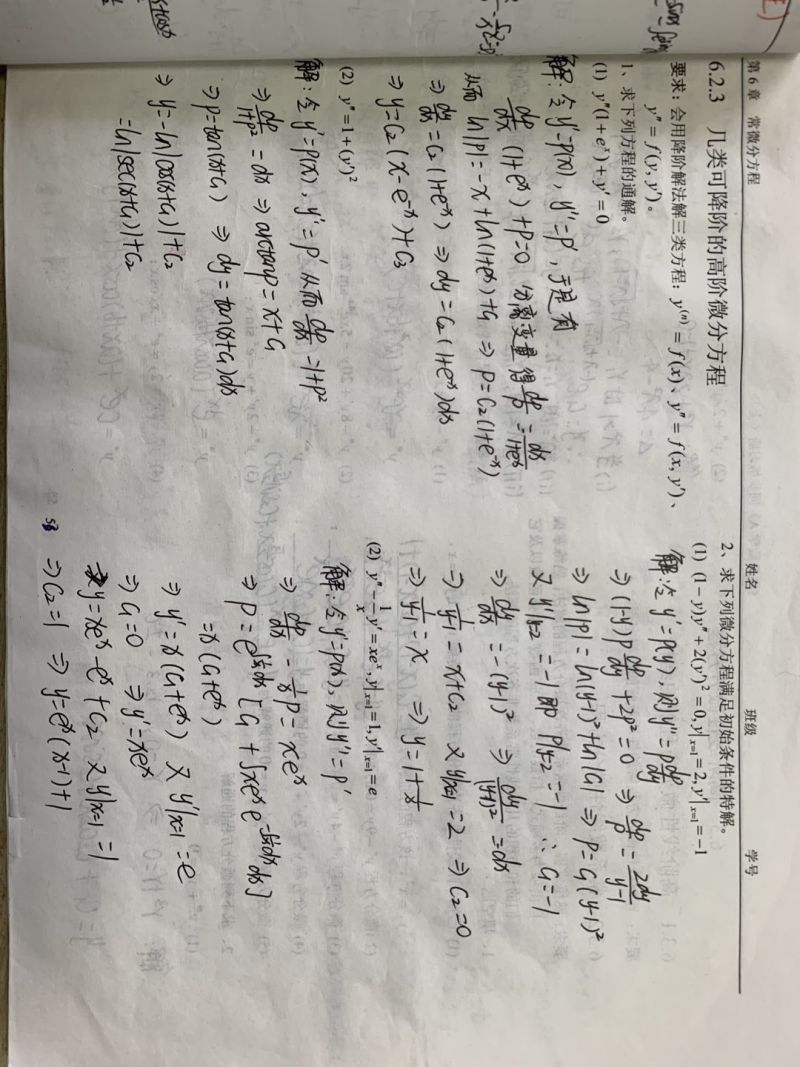 第 6 章 常微分方程 姓名 班级 学号
6.2.3 几类可降阶的高阶微分方程
要求：会用降阶解法解三类方程：y⁽ⁿ⁾ = f(x)、y″ = f(x, y′)、
y″ = f(y, y′)。
1、求下列方程的通解。
(1) y″(1 + eˣ) + y′ = 0
解：令 y′=p(x)，y″=p′，于是有
dp/dx (1+eˣ)+p=0 分离变量得 dp/p = dx/1+eˣ
从而 ln|p|=-x+ln(1+eˣ)+C₁ ⇒ p=C₂(1+e⁻ˣ)
⇒ dy/dx = C₂(1+e⁻ˣ) ⇒ dy=C₂(1+e⁻ˣ)dx
⇒ y=C₂(x-e⁻ˣ)+C₃
(2) y″ = 1 + (y′)²
解：令 y′=p(x)，y″=p′ 从而 dp/dx = 1+p²
⇒ dp/1+p² = dx ⇒ arctanp=x+C₁
⇒ p=tan(x+C₁) ⇒ dy=tan(x+C₁)dx
⇒ y=-ln|cos(x+C₁)|+C₂
=ln|sec(x+C₁)|+C₂
2、求下列微分方程满足初始条件的特解。
(1) (1 − y)y″ + 2(y′)² = 0, y|ₓ₌₁ = 2, y′|ₓ₌₁ = −1
解：令 y′=p(y)，则 y″=p dp/dy
⇒ (1-y)p dp/dy +2p²=0 ⇒ dp/p = 2dy/y-1
⇒ ln|p|=ln(y-1)²+ln|C₁| ⇒ p=C₁(y-1)²
又 y′|y=2 =-1 即 p|y=2 =-1 ∴ C₁=-1
⇒ dy/dx = -(y-1)² ⇒ -dy/(y-1)² =dx
⇒ 1/y-1 = x+C₂ 又 y|x=1 =2 ⇒ C₂=0
⇒ 1/y-1 = x ⇒ y=1+1/x
(2) y″ − 1/x y′ = xeˣ, y|ₓ₌₁ = 1, y′|ₓ₌₁ = e
解：令 y′=p(x)，则 y″=p′
⇒ dp/dx - 1/x p=xeˣ
⇒ p=e^∫1/x dx [C₁+∫xeˣ e^-∫1/x dx dx]
=x(C₁+eˣ)
⇒ y′=x(C₁+eˣ) 又 y′|x=1 =e
⇒ C₁=0 ⇒ y′=xeˣ
y=xeˣ-eˣ+C₂ 又 y|x=1 =1
⇒ C₂=1 ⇒ y=eˣ(x-1)+1